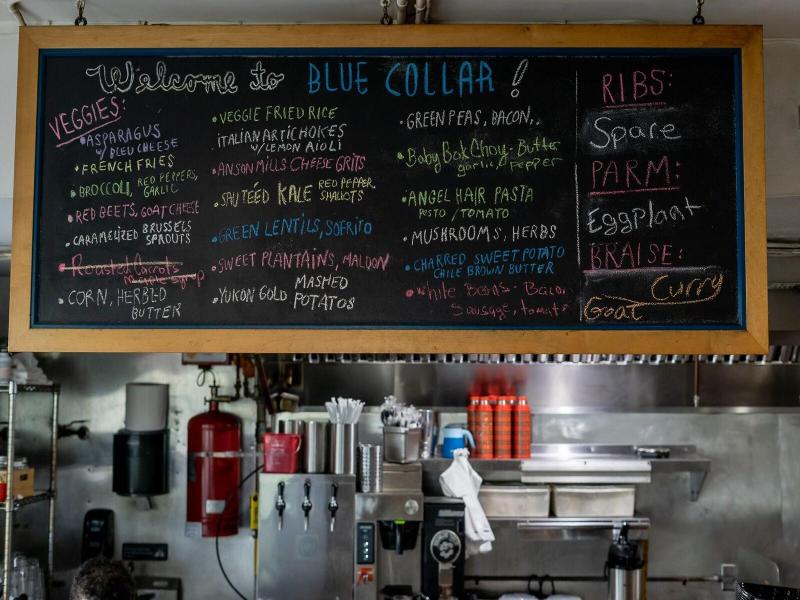 Welcome to BLUE COLLAR!
VEGGIES:
• ASPARAGUS
w/ BLEU CHEESE
• FRENCH FRIES
• BROCCOLI, RED PEPPERS,
GARLIC
• RED BEETS, GOAT CHEESE
• CARAMELIZED BRUSSELS
SPROUTS
• Roasted Carrots
maple syrup
• CORN, HERBED
BUTTER
• VEGGIE FRIED RICE
ITALIAN ARTICHOKES
w/ LEMON AIOLI
• ANSON MILLS CHEESE GRITS
• SAUTÉED KALE RED PEPPER,
SHALLOTS
• GREEN LENTILS, SOFRITO
• SWEET PLANTAINS, MALDON
• YUKON GOLD MASHED
POTATOS
• GREEN PEAS, BACON,
• Baby Bok Choy - Butter
garlic, pepper
• ANGEL HAIR PASTA
PESTO / TOMATO
• MUSHROOMS, HERBS
• CHARRED SWEET POTATO
CHILE BROWN BUTTER
• White Beans - Bacon,
Sausage, tomato
RIBS:
Spare
PARM:
Eggplant
BRAISE:
Curry
Goat